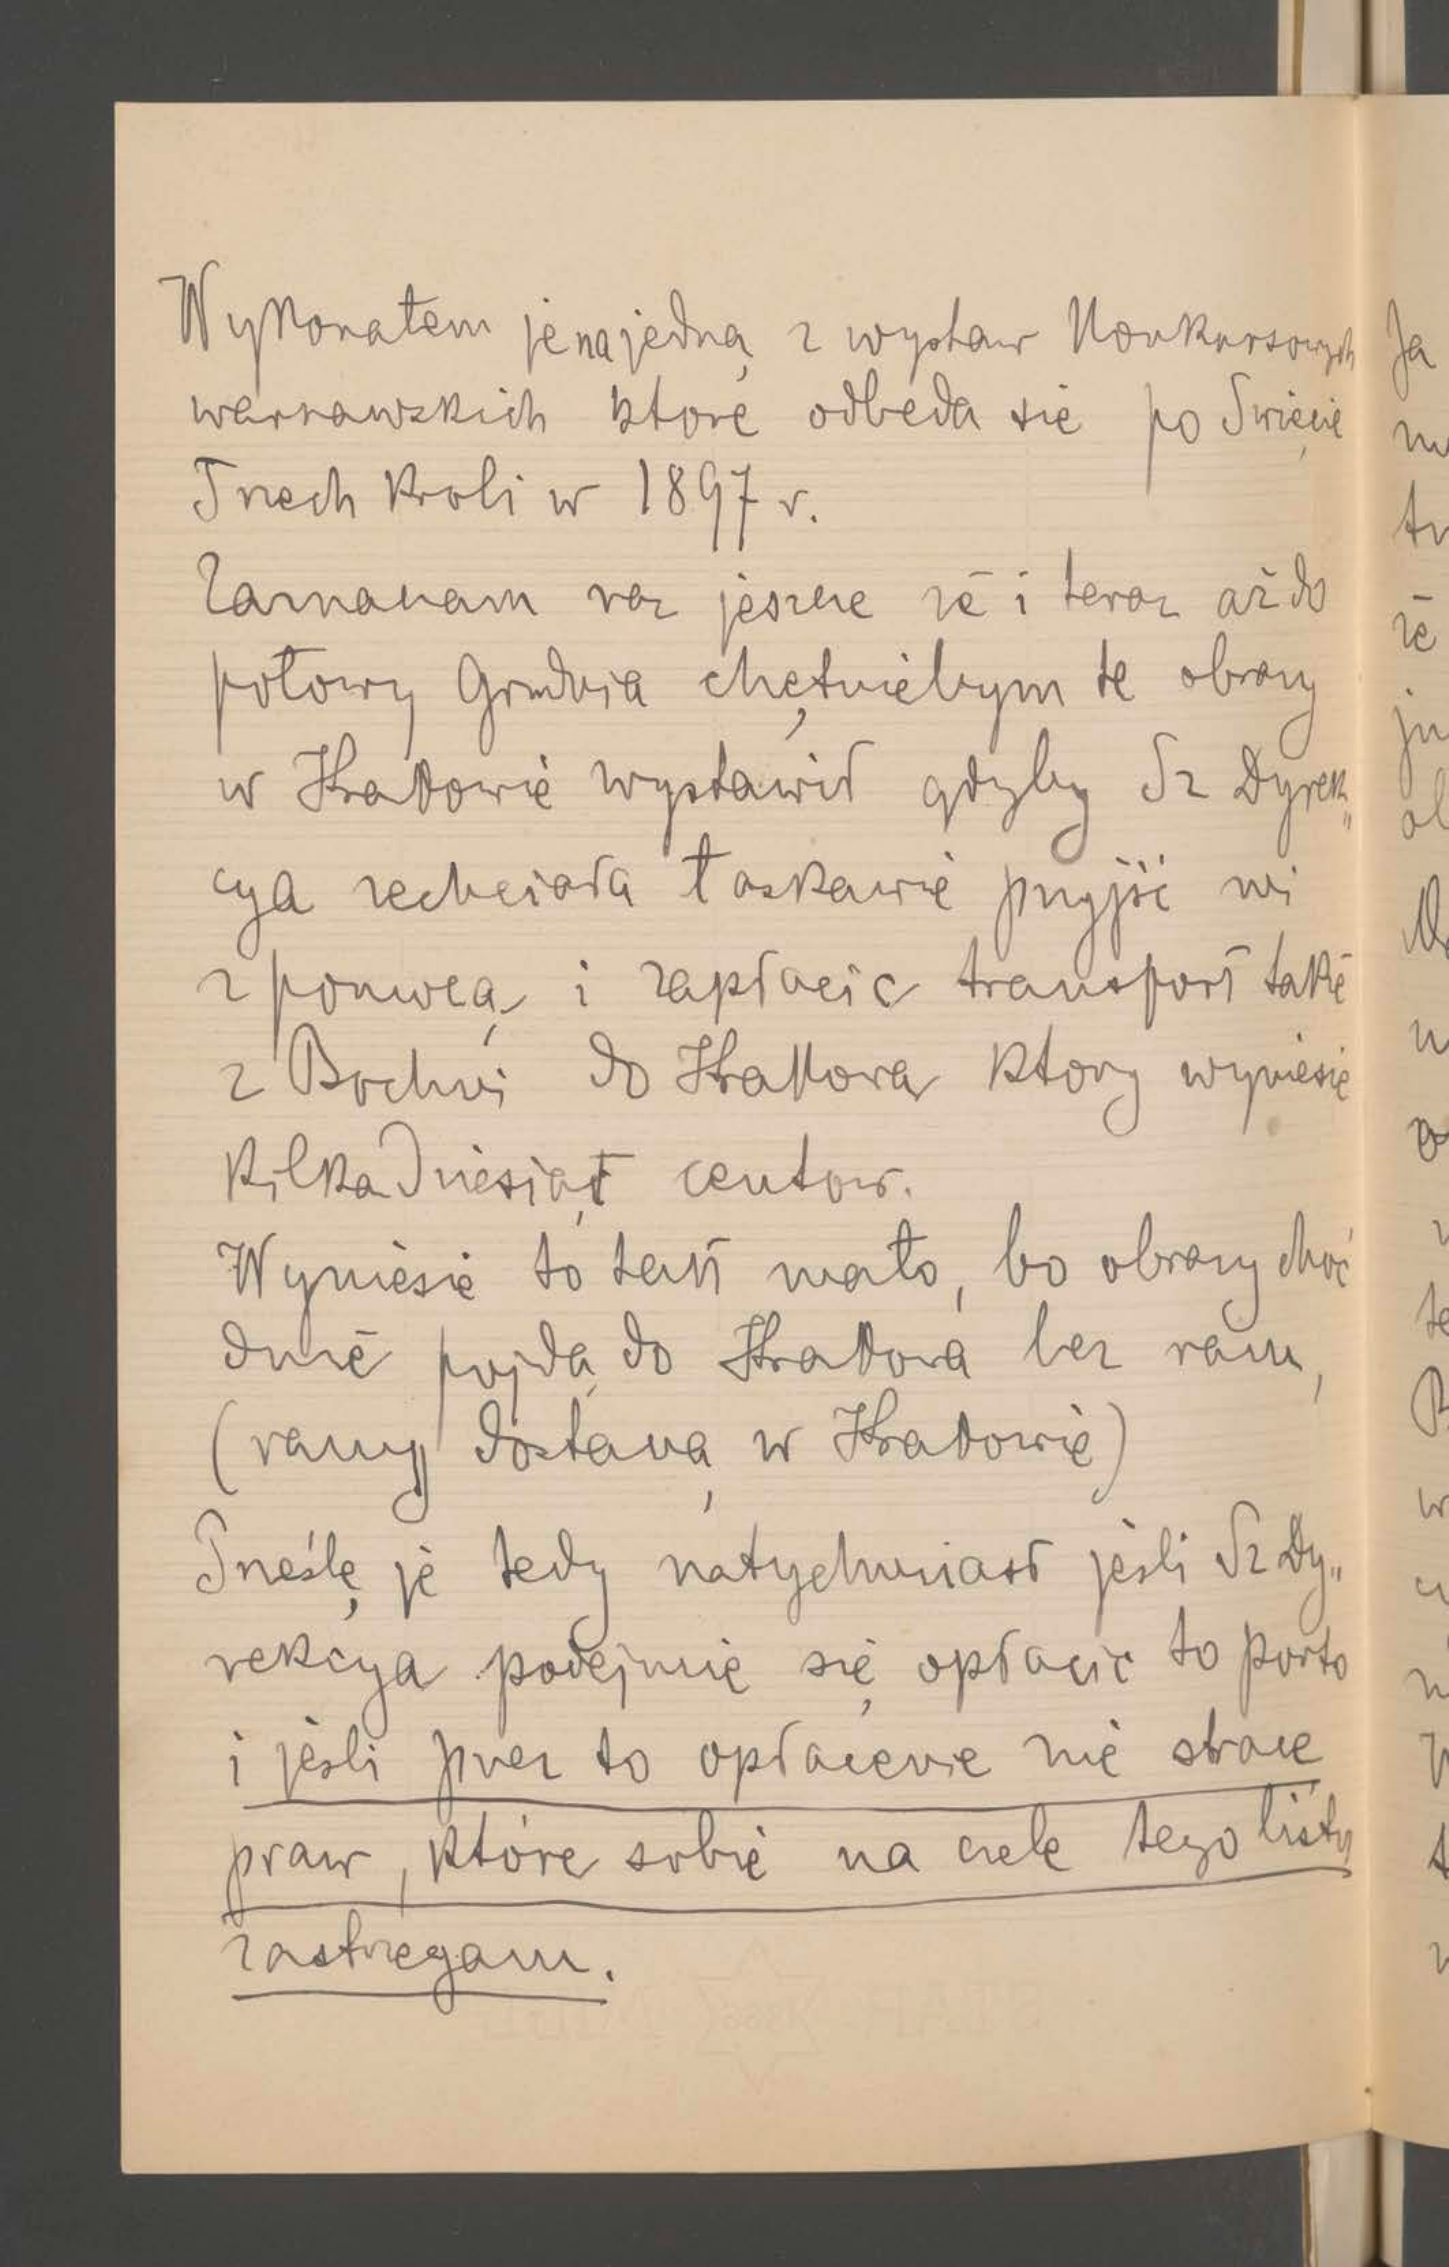 Wykonałem je na jedną z wystaw Konkursowych
warszawskich które odbeda sie po Swięcie
Trzech Kroli w 1897 r.
Zaznaczam raz jeszcze że i teraz aż do
połowy Grudnia chętniebym te obrazy
w Krakowie wystawił gdyby Sz Dyrek„
cya zechciała łaskawie przyjść mi
z pomocą i zapłacic transport także
z Bochni do Krakowa ktory wyniesie
kilkadziesiąt centow.
Wyniesie to tak mało, bo obrazy choć
duże pojdą do Krakowa bez ram,
(ramy dostaną w Krakowie)
Prześlę je tedy natychmiast jeśli Sz Dy„
rekcya podejmie się opłacic to porto
i jeśli przez to opłacenie nie stracę
praw, które sobie na czele tego listu
zastrzegam.
Ja